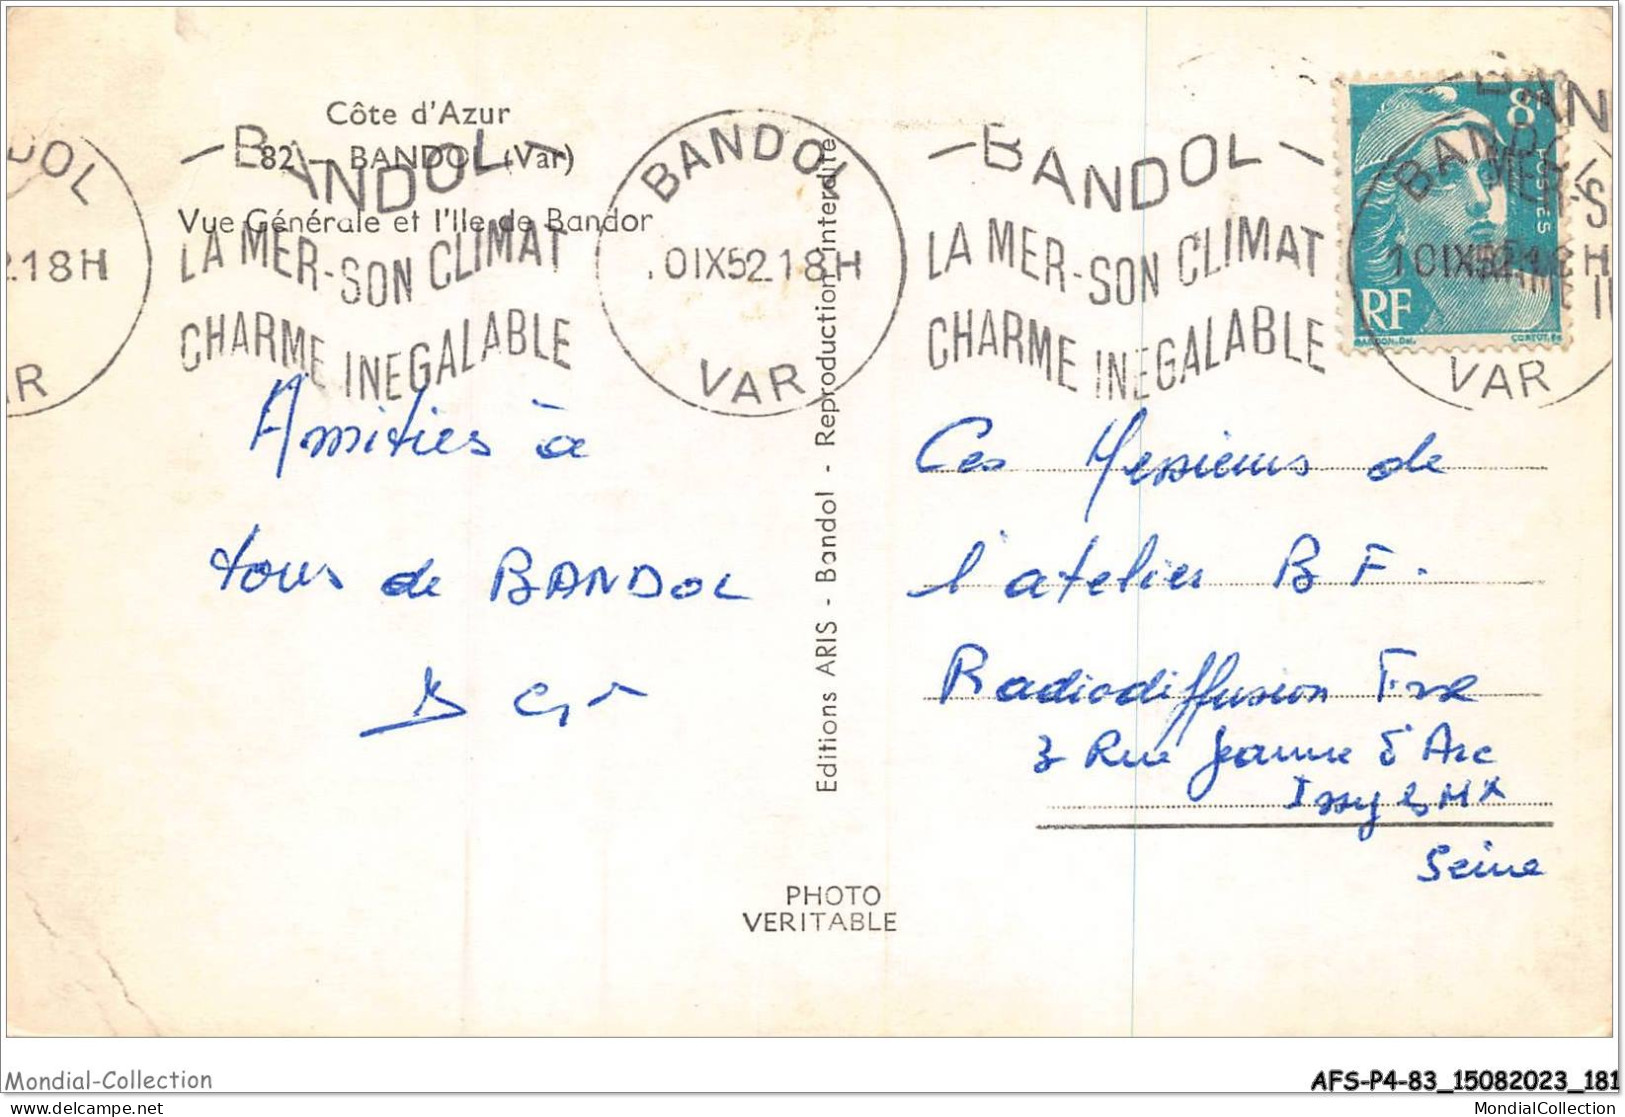 Côte d'Azur
82 - BANDOL (Var)
Vue Générale et l'Ile de Bandor
DOL
2.18H
AR
—BANDOL—
LA MER-SON CLIMAT
CHARME INEGALABLE
BANDOL
.OIX52.18H
VAR
—BANDOL—
LA MER-SON CLIMAT
CHARME INEGALABLE
8F
POSTES
RF
BANDOL
10IX52.18H
VAR
Amitiés à
tous de BANDOL
Editions ARIS - Bandol - Reproduction interdite
Ces Messieurs de
l'atelier B F.
Radiodiffusion Frse
3 Rue Jeanne d'Arc
Issy les Mx
Seine
PHOTO
VERITABLE
Mondial-Collection
AFS-P4-83_15082023_181
delcampe.net
MondialCollection